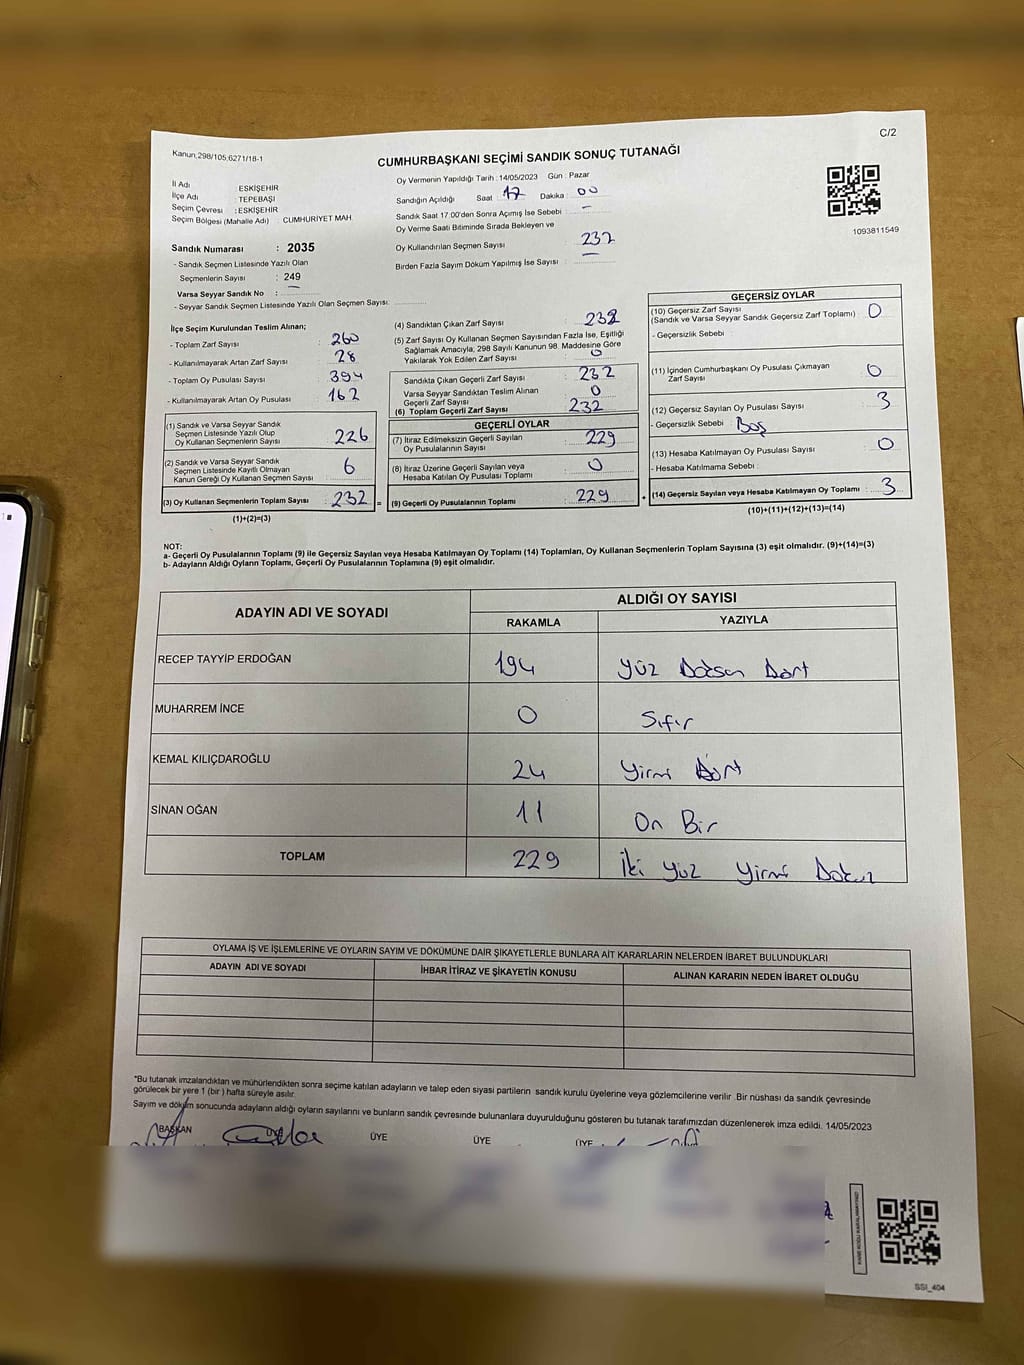 C/2
Kanun,298/105,6271/18-1
CUMHURBAŞKANI SEÇİMİ SANDIK SONUÇ TUTANAĞI
İl Adı : ESKİŞEHİR
İlçe Adı : TEPEBAŞI
Seçim Çevresi : ESKİŞEHİR
Seçim Bölgesi (Mahalle Adı) : CUMHURIYET MAH.
Oy Vermenin Yapıldığı Tarih :14/05/2023 Gün : Pazar
Sandığın Açıldığı Saat 17 Dakika 00
Sandık Saat 17.00'den Sonra Açımış İse Sebebi : –
Oy Verme Saati Bitiminde Sırada Bekleyen ve
Oy Kullandırılan Seçmen Sayısı : 232
Birden Fazla Sayım Döküm Yapılmış İse Sayısı : –
1093811549
Sandık Numarası : 2035
- Sandık Seçmen Listesinde Yazılı Olan
Seçmenlerin Sayısı : 249
Varsa Seyyar Sandık No : –
- Seyyar Sandık Seçmen Listesinde Yazılı Olan Seçmen Sayısı:
İlçe Seçim Kurulundan Teslim Alınan;
- Toplam Zarf Sayısı : 260
- Kullanılmayarak Artan Zarf Sayısı : 28
- Toplam Oy Pusulası Sayısı : 394
- Kullanılmayarak Artan Oy Pusulası : 162
(1) Sandık ve Varsa Seyyar Sandık
Seçmen Listesinde Yazılı Olup
Oy Kullanan Seçmenlerin Sayısı : 226
(2) Sandık ve Varsa Seyyar Sandık
Seçmen Listesinde Kayıtlı Olmayan
Kanun Gereği Oy Kullanan Seçmen Sayısı : 6
(3) Oy Kullanan Seçmenlerin Toplam Sayısı : 232 =
(1)+(2)=(3)
(4) Sandıktan Çıkan Zarf Sayısı : 232
(5) Zarf Sayısı Oy Kullanan Seçmen Sayısından Fazla İse, Eşitliği
Sağlamak Amacıyla, 298 Sayılı Kanunun 98. Maddesine Göre
Yakılarak Yok Edilen Zarf Sayısı : 0
Sandıkta Çıkan Geçerli Zarf Sayısı : 232
Varsa Seyyar Sandıktan Teslim Alınan
Geçerli Zarf Sayısı : 0
(6) Toplam Geçerli Zarf Sayısı : 232
GEÇERLİ OYLAR
(7) İtiraz Edilmeksizin Geçerli Sayılan
Oy Pusulasının Sayısı : 229
(8) İtiraz Üzerine Geçerli Sayılan veya
Hesaba Katılan Oy Pusulası Toplamı : 0
(9) Geçerli Oy Pusulalarının Toplamı : 229 +
GEÇERSİZ OYLAR
(10) Geçersiz Zarf Sayısı
(Sandık ve Varsa Seyyar Sandık Geçersiz Zarf Toplamı) : 0
- Geçersizlik Sebebi :
(11) İçinden Cumhurbaşkanı Oy Pusulası Çıkmayan
Zarf Sayısı : 0
(12) Geçersiz Sayılan Oy Pusulası Sayısı : 3
- Geçersizlik Sebebi : Boş
(13) Hesaba Katılmayan Oy Pusulası Sayısı : 0
- Hesaba Katılmama Sebebi :
(14) Geçersiz Sayılan veya Hesaba Katılmayan Oy Toplamı : 3
(10)+(11)+(12)+(13)=(14)
NOT:
a- Geçerli Oy Pusulalarının Toplamı (9) ile Geçersiz Sayılan veya Hesaba Katılmayan Oy Toplamı (14) Toplamları, Oy Kullanan Seçmenlerin Toplam Sayısına (3) eşit olmalıdır. (9)+(14)=(3)
b- Adayların Aldığı Oyların Toplamı, Geçerli Oy Pusulalarının Toplamına (9) eşit olmalıdır.
ADAYIN ADI VE SOYADI
ALDIĞI OY SAYISI
RAKAMLA YAZIYLA
RECEP TAYYİP ERDOĞAN 194 Yüz Doksan Dört
MUHARREM İNCE 0 Sıfır
KEMAL KILIÇDAROĞLU 24 Yirmi Dört
SİNAN OĞAN 11 On Bir
TOPLAM 229 İki Yüz Yirmi Dokuz
OYLAMA İŞ VE İŞLEMLERİNE VE OYLARIN SAYIM VE DÖKÜMÜNE DAİR ŞİKAYETLERLE BUNLARA AİT KARARLARIN NELERDEN İBARET BULUNDUKLARI
ADAYIN ADI VE SOYADI İHBAR İTİRAZ VE ŞİKAYETİN KONUSU ALINAN KARARIN NEDEN İBARET OLDUĞU
*Bu tutanak imzalandıktan ve mühürlendikten sonra seçime katılan adayların ve talep eden siyasi partilerin sandık kurulu üyelerine veya gözlemcilerine verilir .Bir nüshası da sandık çevresinde
görülecek bir yere 1 (bir ) hafta süreyle asılır.
Sayım ve döküm sonucunda adayların aldığı oyların sayılarını ve bunların sandık çevresinde bulunanlara duyurulduğunu gösteren bu tutanak tarafımızdan düzenlenerek imza edildi. 14/05/2023
BAŞKAN ÜYE ÜYE ÜYE ÜYE
SSİ_404